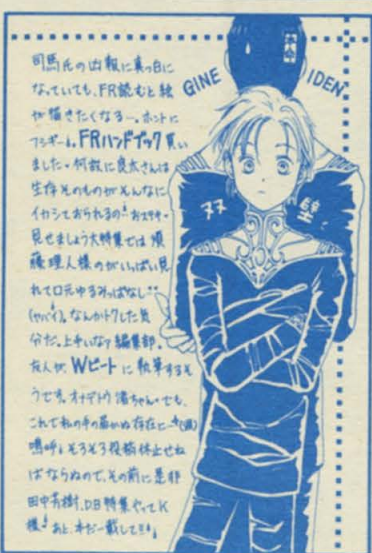 司馬氏の凶報に真っ白に
なっていても、FR読むと絵
が描きたくなる〜。ホントに
フシギー。FRハンドブック買い
ました。何故に良太さんは
生存そのものがそんなに
イカシておられるの
見せましょう大特集では須
藤理人様のがいっぱい見
れて口元ゆるみっぱなし
(ヤバイ)。なんかトクした気
分だ。上手いなァ編集部。
友人が、Wビートに執筆するそ
うです。オメデトウ 渚ちゃん。でも、
これで私の手の届かぬ存在に
嗚呼。そろそろ投稿休止せね
ばならぬので、その前に是非
田中芳樹、D.B特集やってK
様 あと、本だー載して!!
GINE IDEN
双璧